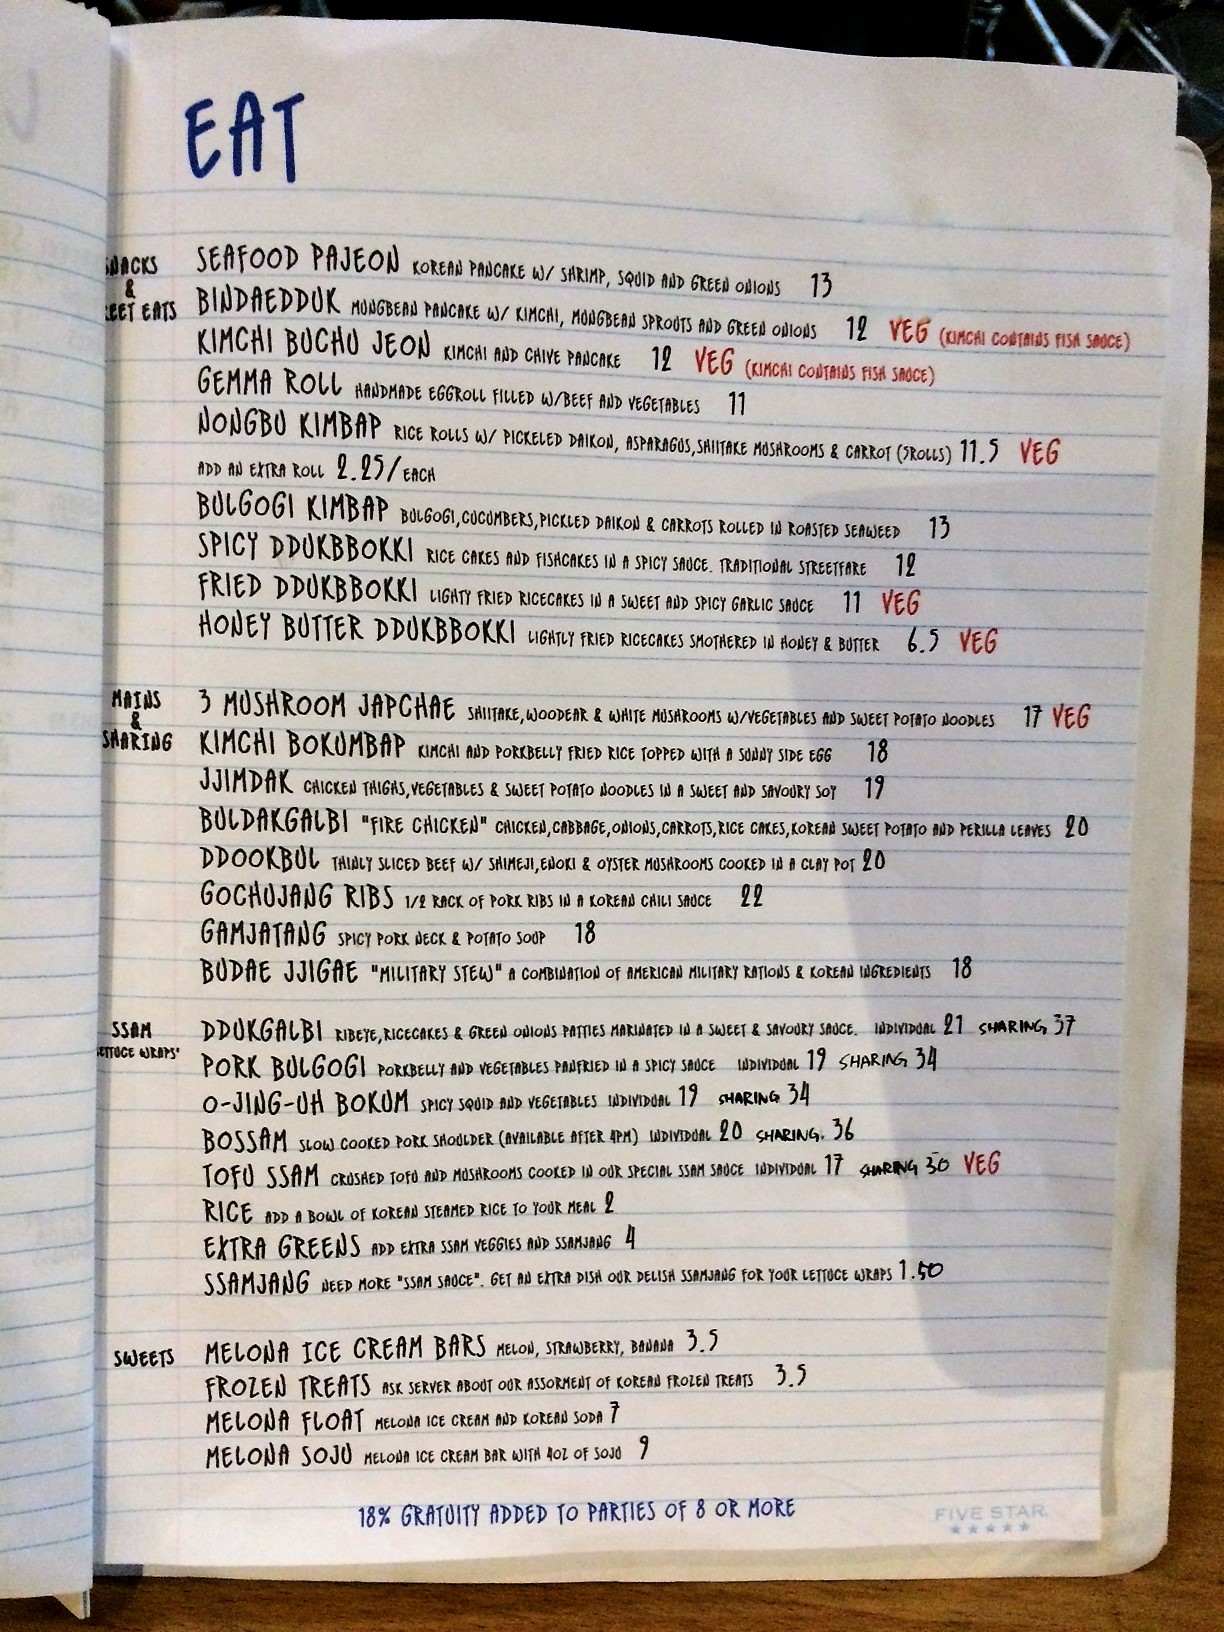 EAT
SNACKS
&
EET EATS
SEAFOOD PAJEON KOREAN PANCAKE W/ SHRIMP, SQUID AND GREEN ONIONS 13
BINDAEDDUK MUNGBEAN PANCAKE W/ KIMCHI, MUNGBEAN SPROUTS AND GREEN ONIONS 12 VEG (KIMCHI CONTAINS FISH SAUCE)
KIMCHI BUCHU JEON KIMCHI AND CHIVE PANCAKE 12 VEG (KIMCHI CONTAINS FISH SAUCE)
GEMMA ROLL HANDMADE EGGROLL FILLED W/BEEF AND VEGETABLES 11
NONGBU KIMBAP RICE ROLLS W/ PICKELED DAIKON, ASPARAGUS,SHIITAKE MUSHROOMS & CARROT (5ROLLS) 11.5 VEG
ADD AN EXTRA ROLL 2.25/EACH
BULGOGI KIMBAP BULGOGI,CUCUMBERS,PICKLED DAIKON & CARROTS ROLLED IN ROASTED SEAWEED 13
SPICY DDUKBBOKKI RICE CAKES AND FISHCAKES IN A SPICY SAUCE. TRADITIONAL STREETFARE 12
FRIED DDUKBBOKKI LIGHTY FRIED RICECAKES IN A SWEET AND SPICY GARLIC SAUCE 11 VEG
HONEY BUTTER DDUKBBOKKI LIGHTLY FRIED RICECAKES SMOTHERED IN HONEY & BUTTER 6.5 VEG
MAINS
&
SHARING
3 MUSHROOM JAPCHAE SHIITAKE,WOODEAR & WHITE MUSHROOMS W/VEGETABLES AND SWEET POTATO NOODLES 17 VEG
KIMCHI BOKUMBAP KIMCHI AND PORKBELLY FRIED RICE TOPPED WITH A SUNNY SIDE EGG 18
JJIMDAK CHICKEN THIGHS,VEGETABLES & SWEET POTATO NOODLES IN A SWEET AND SAVOURY SOY 19
BULDAKGALBI "FIRE CHICKEN" CHICKEN,CABBAGE,ONIONS,CARROTS,RICE CAKES,KOREAN SWEET POTATO AND PERILLA LEAVES 20
DDOOKBUL THINLY SLICED BEEF W/ SHIMEJI,ENOKI & OYSTER MUSHROOMS COOKED IN A CLAY POT 20
GOCHUJANG RIBS 1/2 RACK OF PORK RIBS IN A KOREAN CHILI SAUCE 22
GAMJATANG SPICY PORK NECK & POTATO SOUP 18
BUDAE JJIGAE "MILITARY STEW" A COMBINATION OF AMERICAN MILITARY RATIONS & KOREAN INGREDIENTS 18
SSAM
ETTUCE WRAPS'
DDUKGALBI RIBEYE,RICECAKES & GREEN ONIONS PATTIES MARINATED IN A SWEET & SAVOURY SAUCE. INDIVIDUAL 21 SHARING 37
PORK BULGOGI PORKBELLY AND VEGETABLES PANFRIED IN A SPICY SAUCE INDIVIDUAL 19 SHARING 34
O-JING-UH BOKUM SPICY SQUID AND VEGETABLES INDIVIDUAL 19 SHARING 34
BOSSAM SLOW COOKED PORK SHOULDER (AVAILABLE AFTER 4PM) INDIVIDUAL 20 SHARING. 36
TOFU SSAM CRUSHED TOFU AND MUSHROOMS COOKED IN OUR SPECIAL SSAM SAUCE INDIVIDUAL 17 SHARING 30 VEG
RICE ADD A BOWL OF KOREAN STEAMED RICE TO YOUR MEAL 2
EXTRA GREENS ADD EXTRA SSAM VEGGIES AND SSAMJANG 4
SSAMJANG NEED MORE "SSAM SAUCE". GET AN EXTRA DISH OUR DELISH SSAMJANG FOR YOUR LETTUCE WRAPS 1.50
SWEETS
MELONA ICE CREAM BARS MELON, STRAWBERRY, BANANA 3.5
FROZEN TREATS ASK SERVER ABOUT OUR ASSORMENT OF KOREAN FROZEN TREATS 3.5
MELONA FLOAT MELONA ICE CREAM AND KOREAN SODA 7
MELONA SOJU MELONA ICE CREAM BAR WITH 4OZ OF SOJU 9
18% GRATUITY ADDED TO PARTIES OF 8 OR MORE
FIVE STAR